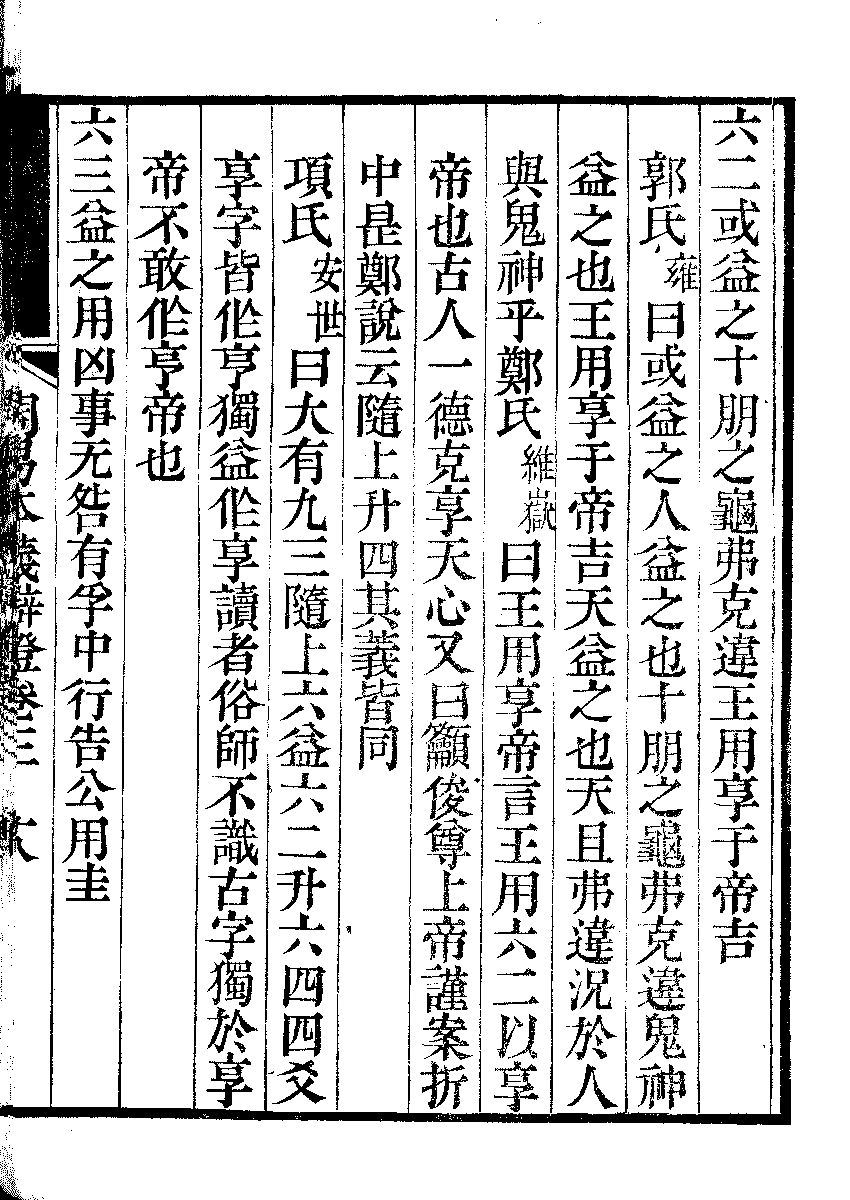 六二或益之十朋之龜弗克違王用享于帝吉
郭氏雍曰或益之人益之也十朋之龜弗克違鬼神
益之也王用享于帝吉天益之也天且弗違況於人
與鬼神乎鄭氏維嶽曰王用享帝言王用六二以享
帝也古人一德克享天心又曰籲俊尊上帝謹案折
中是鄭說云隨上升四其義皆同
項氏安世曰大有九三隨上六益六二升六四四爻
享字皆作亨獨益作享讀者俗師不識古字獨於享
帝不敢作亨帝也
六三益之用凶事无咎有孚中行告公用圭
周易本義辯證卷三